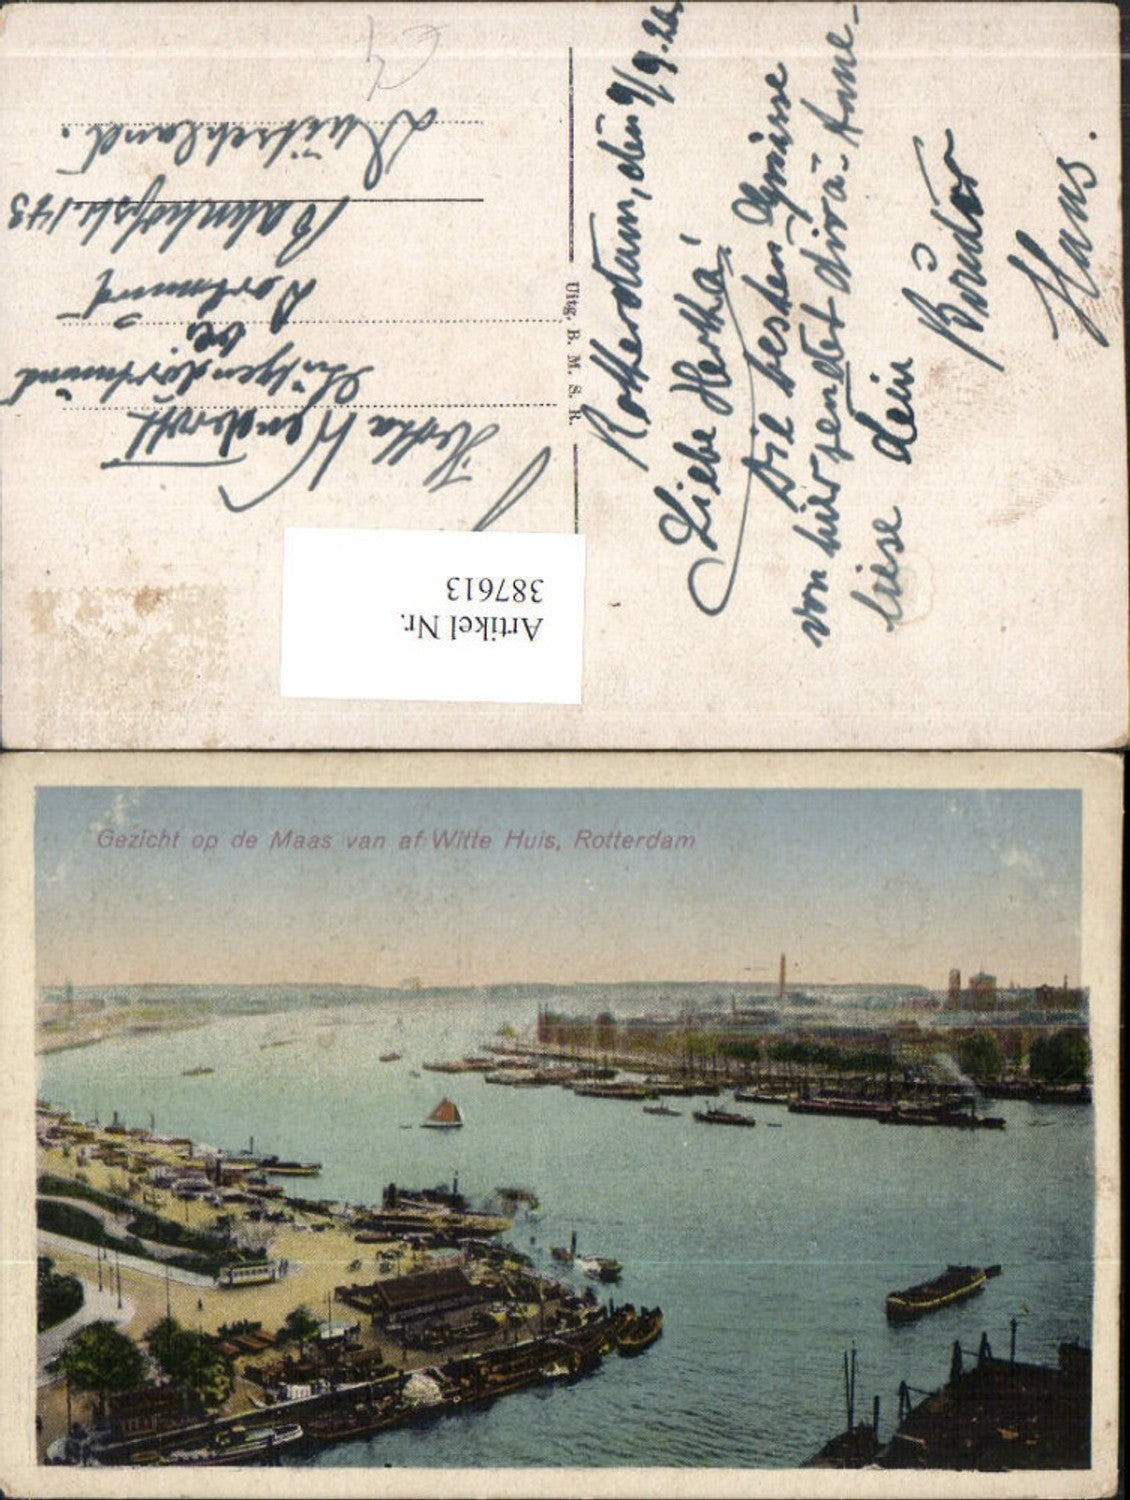 Rotterdam, den 9/9.20.
Liebe Hertha!
Die besten Grüsse
von hier sendet dir u. Anne-
liese dein
Bruder
Hans.
Uitg. B. M. S. R.
Hertha
Lütgendortmund
bei
Dortmund
Bahnhofstr. 143
Deutschland.
Artikel Nr.
387613
Gezicht op de Maas van af Witte Huis, Rotterdam